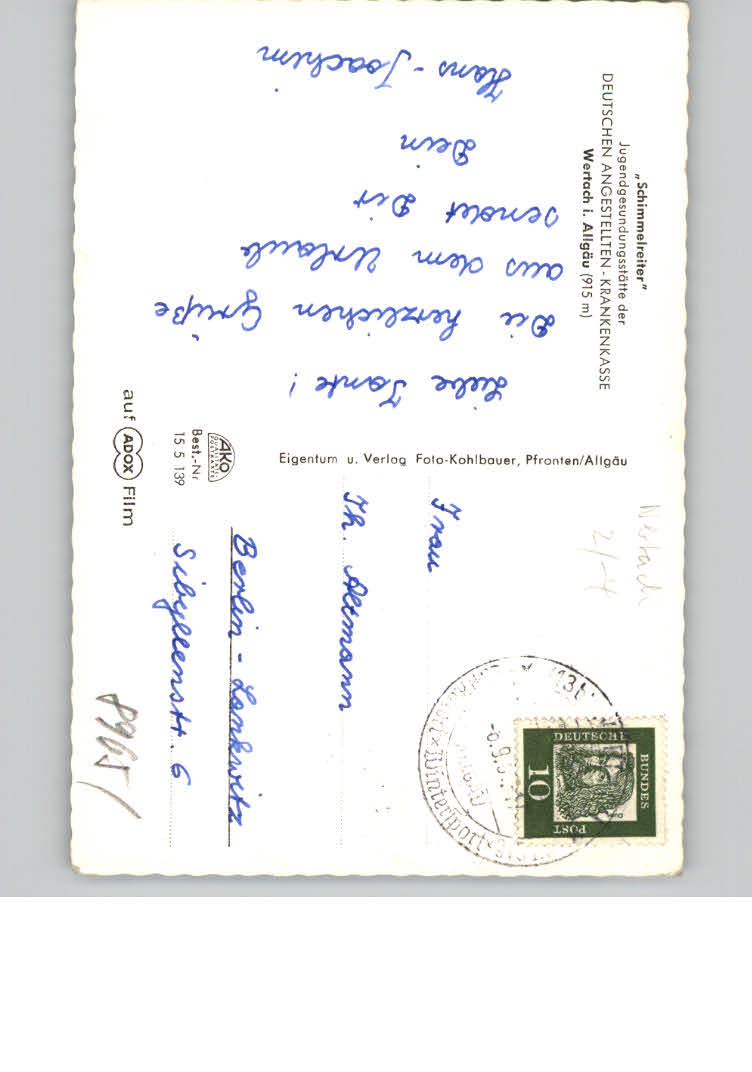 „Schimmelreiter"
Jugendgesundungsstätte der
DEUTSCHEN ANGESTELLTEN-KRANKENKASSE
Wertach i. Allgäu (915 m)
Liebe Tante!
Die herzlichen Grüße
aus dem Urlaub
sendet Dir
Dein
Hans-Joachim
Eigentum u. Verlag Foto-Kohlbauer, Pfronten/Allgäu
AKO
Best.-Nr
15 5 139
auf ADOX Film
Wertach
2/-4
DEUTSCHE
BUNDES
POST
10
Winterport
Frau
Th. Altmann
Berlin - Lankwitz
Sibyllenstr. 6